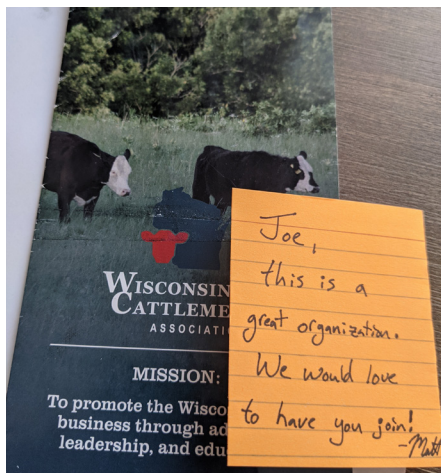 WISCONSIN
CATTLEME
ASSOCIATI
MISSION:
To promote the Wisco
business through ad
leadership, and edu
Joe,
this is a
great organization.
We would love
to have you join!